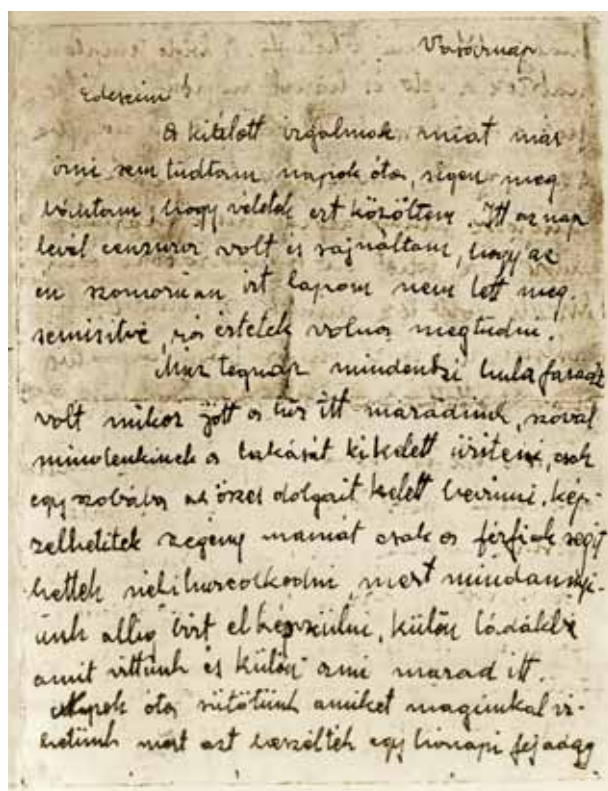 Vasárnap
Edeseim!
A kitelett izgalmak miat már
irni sem tudtam napok óta, régen meg
vártam, hogy veletek ezt közöltem. Itt az nap
levél cenzura volt és sajnáltam, hogy az
én szomorúan irt lapom nem lett meg
semisitve, rá értetek volna megtudni.
Már tegnap mindenki hula faradt
volt mikor jött a hir itt maradunk, szóval
mindenkinek a lakását kikelett üriteni, csak
egy szobába az öszes dolgait kelett bevinni. Kép-
zelhetitek szegény mamát csak a férfiak segit
hettek neki hurcolkodni, mert mindannyi-
unk allig birt elkészülni, külön ládákba
amit vittünk és külön ami marad itt.
Napok óta sütötünk amiket magunkal vi-
hetünk mert azt beszélték egy honapi fejadag